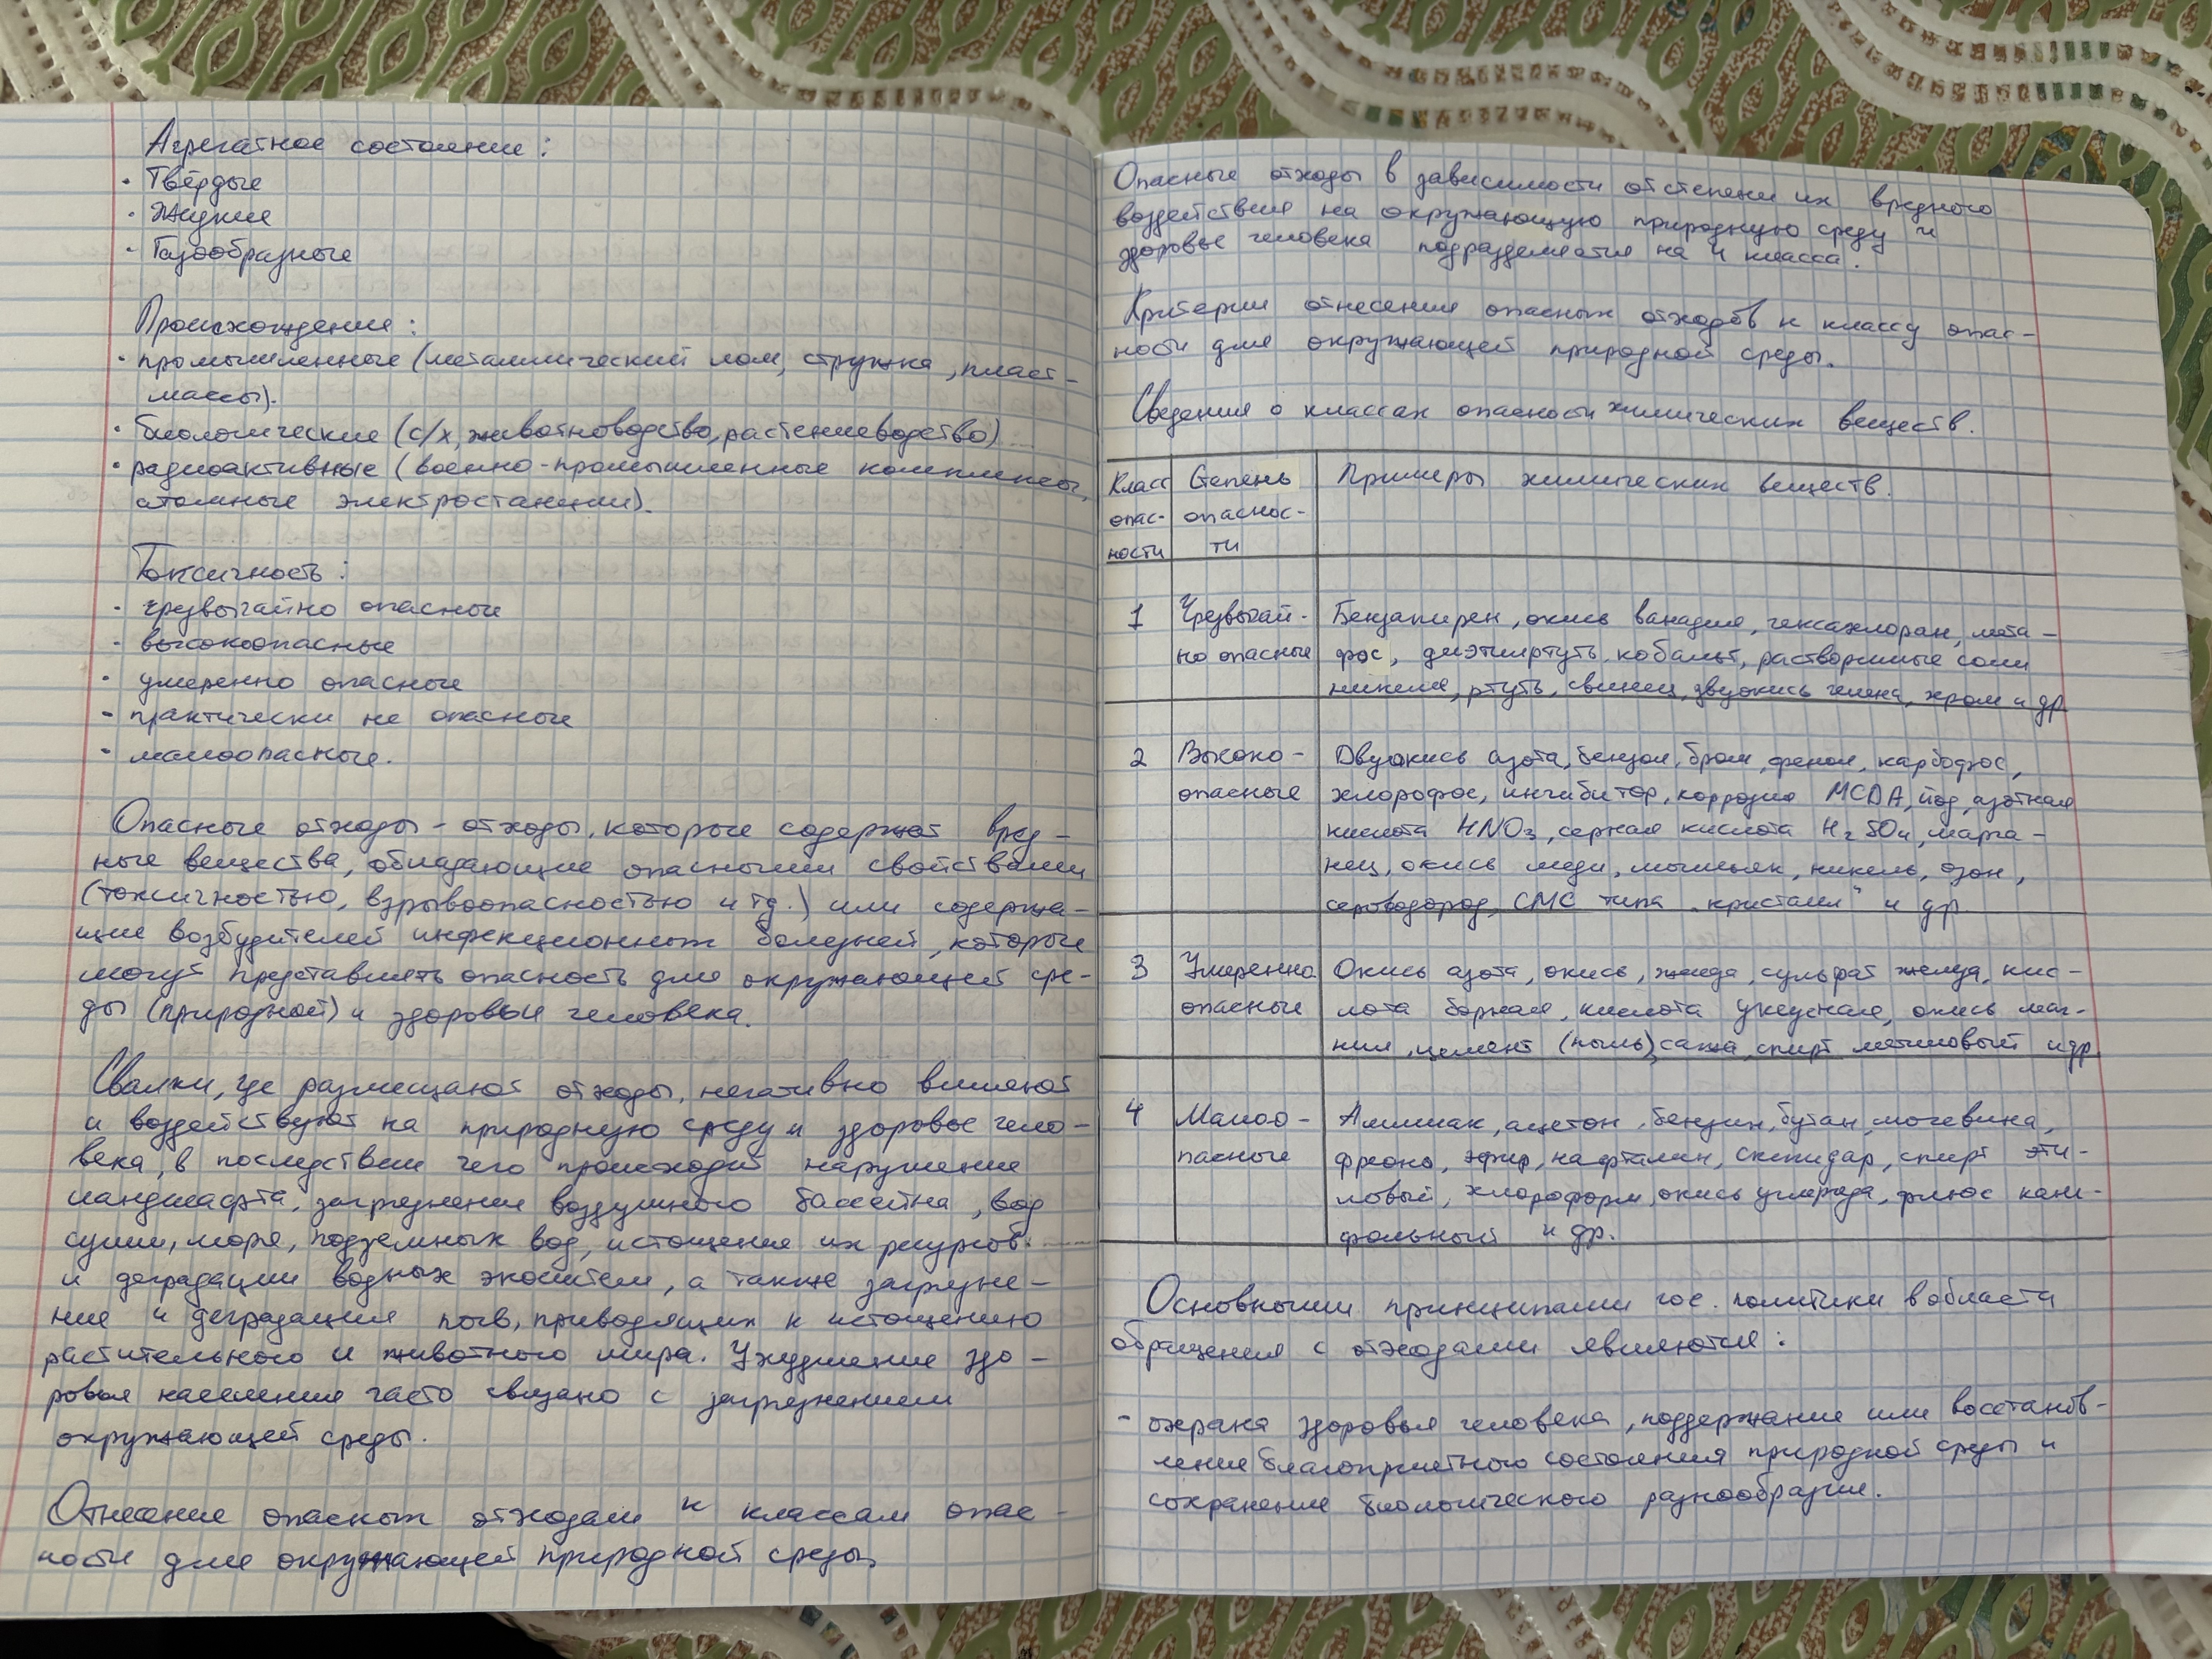 Агрегатное состояние:
· Твёрдые
· Жидкие
· Газообразные
Происхождение:
· промышленные (металлический лом, стружка, пласт-
массы).
· биологические (с/х, животноводство, растениеводство)
· радиоактивные (военно-промышленные комплексы,
атомные электростанции).
Токсичность:
· чрезвычайно опасные
· высокоопасные
· умеренно опасные
- практически не опасные
· малоопасные.
Опасные отходы - отходы, которые содержат вред-
ные вещества, обладающие опасными свойствами
(токсичностью, взрывоопасностью и тд.) или содержа-
щие возбудителей инфекционных болезней, которые
могут представлять опасность для окружающей сре-
ды (природной) и здоровья человека.
Свалки, где размещают отходы, негативно влияют
и воздействуют на природную среду и здоровье чело-
века, в последствии чего происходит нарушение
ландшафта, загрязнение воздушного бассейна, вод
суши, моря, подземных вод, истощение их ресурсов.
и деградации водных экосистем, а также загрязне-
ние и деградация почв, приводящих к истощению
растительного и животного мира. Ухудшение здо-
ровья населения часто связано с загрязнением
окружающей среды.
Отнесение опасных отходам к классам опас-
ности для окружающей природной среды,
Опасные отходы в зависимости от степени их вредного
воздействия на окружающую природную среду и
здоровье человека подразделяется на 4 класса.
Критерии отнесения опасных отходов к классу опас-
ности для окружающей природной среды.
Сведения о классах опасности химических веществ.
Класс Степень Примеры химических веществ.
опас- опаснос-
ности ти
1 Чрезвычай- Бензапирен, окись ванадия, гексахлоран, мета-
но опасные фос, диэтилртуть, кобальт, растворимые соли
никеля, ртуть, свинец, двуокись селена, хром и др
2 Высоко- Двуокись азота, бензол, бром, фенол, карбофос,
опасные хлорофос, ингибитор, коррозия МСDА, йод, азотная
кислота HNO3, серная кислота H2SO4, марга-
нец, окись меди, мышьяк, никель, озон,
сероводород, СМС типа „кристалл" и др
3 Умеренно Окись азота, окись, желеда, сульфат желеда, кис-
опасные лота борная, кислота уксусная, окись маг-
ния, цемент (пыль), сажа, спирт метиловый и др
4 Малоо- Аммиак, ацетон, бензин, бутан, мочевина,
пасные фреоно, эфир, нафталин, скипидар, спирт эти-
ловый, хлороформ, окись углерода, флюс кани-
фольный и др.
Основными принципами гос. политики в области
обращения с отходами являются:
- охрана здоровья человека, поддержание или восстанов-
ление благоприятного состояния природной среды и
сохранение биологического разнообразия.